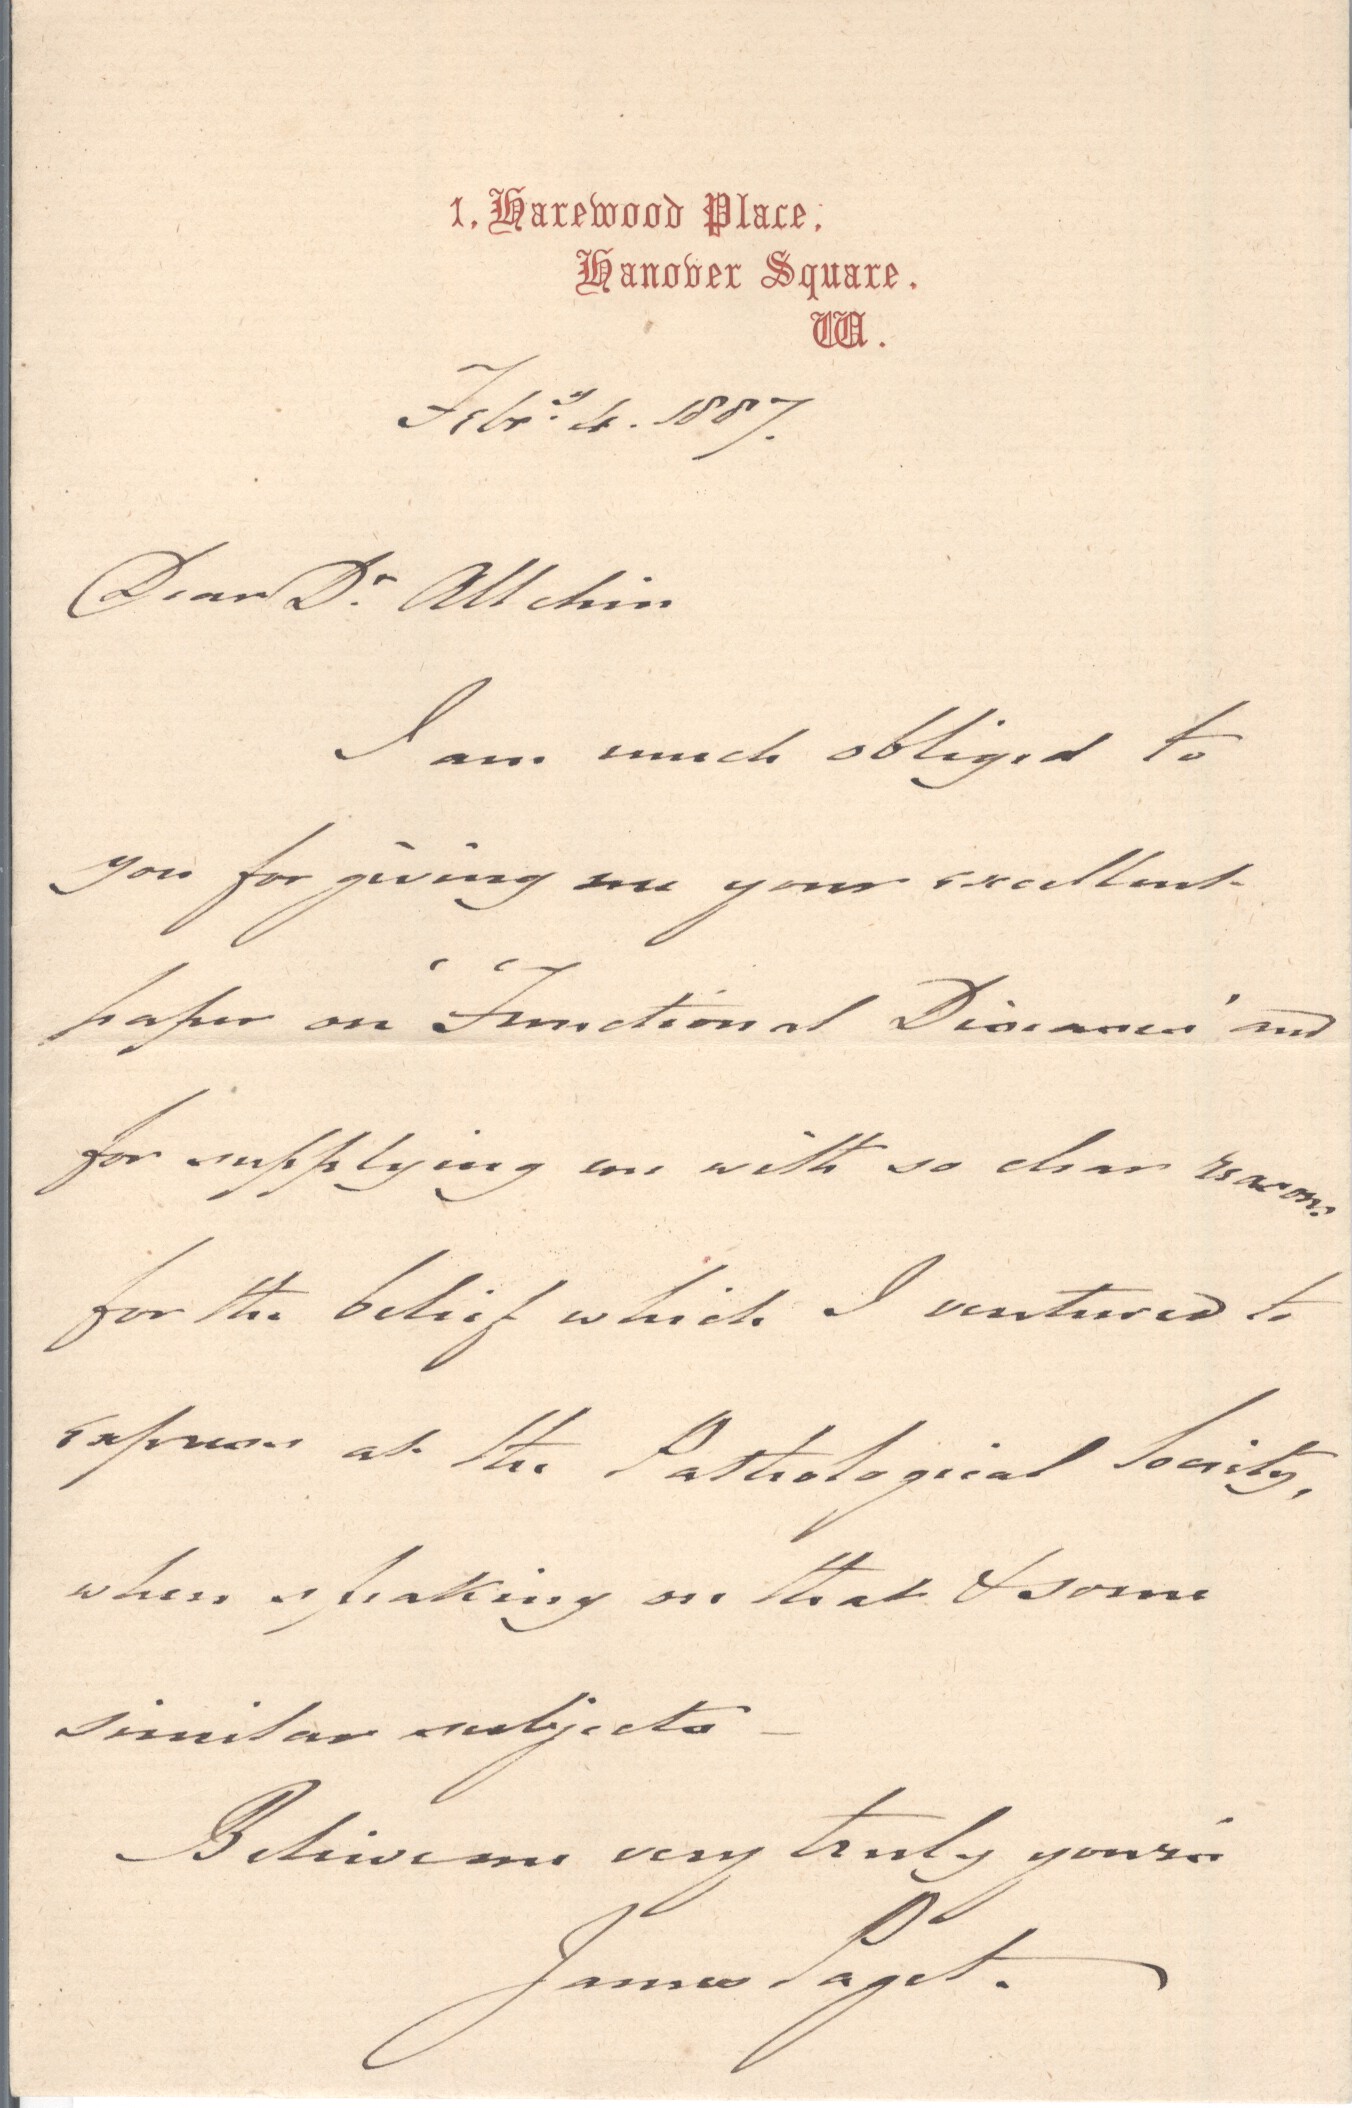 1, Harewood Place,
Hanover Square.
W.
Febry. 4. 1887.
Dear Dr. Allchin
I am much obliged to
you for giving me your excellent
paper on 'Functional Diseases' and
for supplying me with so clear reasons
for the belief which I ventured to
express at the Pathological Society,
when speaking on that & some
similar subjects –
Believe me very truly yours
James Paget.